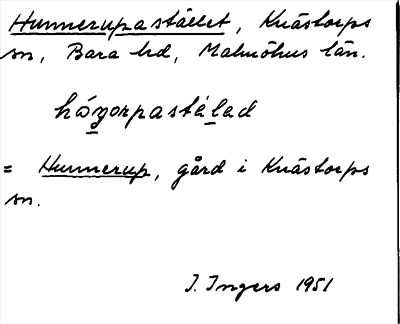 Hunnerupastället, Knästorps
sn, Bara hd, Malmöhus län.
hózorpastälad
= Hunnerup, gård i Knästorps
sn.
I. Ingers 1951